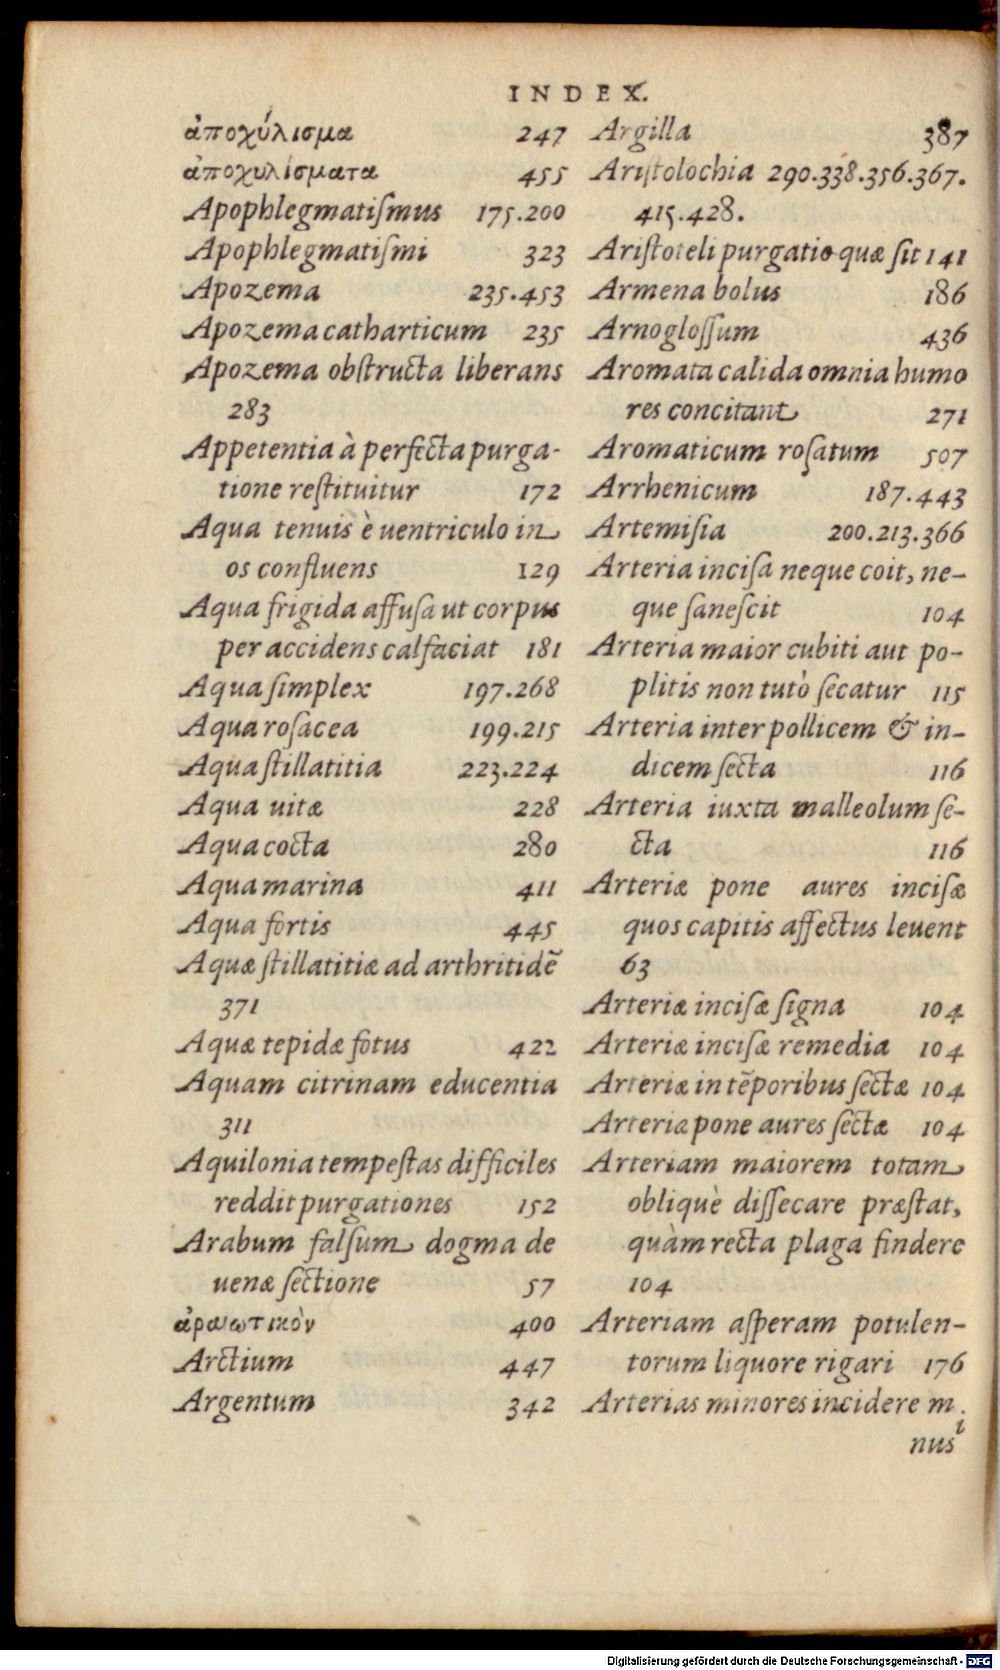 INDEX.
ἀποχύλισμα 247
ἀποχυλίσματα 455
Apophlegmatiſmus 175.200
Apophlegmatiſmi 323
Apozema 235.453
Apozema catharticum 235
Apozema obſtructa liberans
283
Appetentia à perfecta purga-
tione reſtituitur 172
Aqua tenuis è uentriculo in
os confluens 129
Aqua frigida affuſa ut corpus
per accidens calfaciat 181
Aqua ſimplex 197.268
Aqua roſacea 199.215
Aqua ſtillatitia 223.224
Aqua uitæ 228
Aqua cocta 280
Aqua marina 411
Aqua fortis 445
Aquæ ſtillatitiæ ad arthritidẽ
371
Aquæ tepidæ fotus 422
Aquam citrinam educentia
311
Aquilonia tempeſtas difficiles
reddit purgationes 152
Arabum falſum dogma de
uenæ ſectione 57
ἀραιωτικὸν 400
Arctium 447
Argentum 342
Argilla 387
Ariſtolochia 290.338.356.367.
415.428.
Ariſtoteli purgatio quæ ſit 141
Armena bolus 186
Arnogloſſum 436
Aromata calida omnia humo
res concitant 271
Aromaticum roſatum 507
Arrhenicum 187.443
Artemiſia 200.213.366
Arteria inciſa neque coit, ne-
que ſaneſcit 104
Arteria maior cubiti aut po-
plitis non tutò ſecatur 115
Arteria inter pollicem & in-
dicem ſecta 116
Arteria iuxta malleolum ſe-
cta 116
Arteriæ pone aures inciſæ
quos capitis affectus leuent
63
Arteriæ inciſæ ſigna 104
Arteriæ inciſæ remedia 104
Arteriæ in tẽporibus ſectæ 104
Arteriæ pone aures ſectæ 104
Arteriam maiorem totam
obliquè diſſecare præſtat,
quàm recta plaga findere
104
Arteriam aſperam potulen-
torum liquore rigari 176
Arterias minores incidere mi
nus